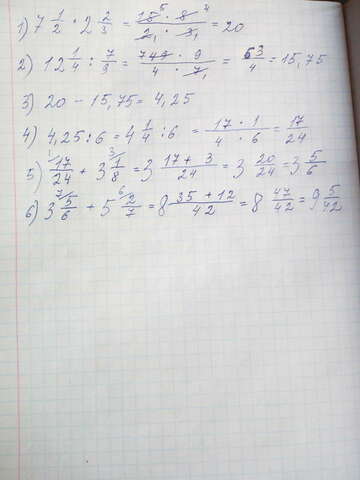 1) 7 1/2 · 2 2/3 = 15 · 8 / 2 · 3 = 20
2) 12 1/4 : 7/9 = 49 · 9 / 4 · 7 = 63/4 = 15,75
3) 20 - 15,75 = 4,25
4) 4,25 : 6 = 4 1/4 : 6 = 17 · 1 / 4 · 6 = 17/24
5) 17/24 + 3 1/8 = 3 17 + 3 / 24 = 3 20/24 = 3 5/6
6) 3 5/6 + 5 2/7 = 8 35 + 12 / 42 = 8 47/42 = 9 5/42